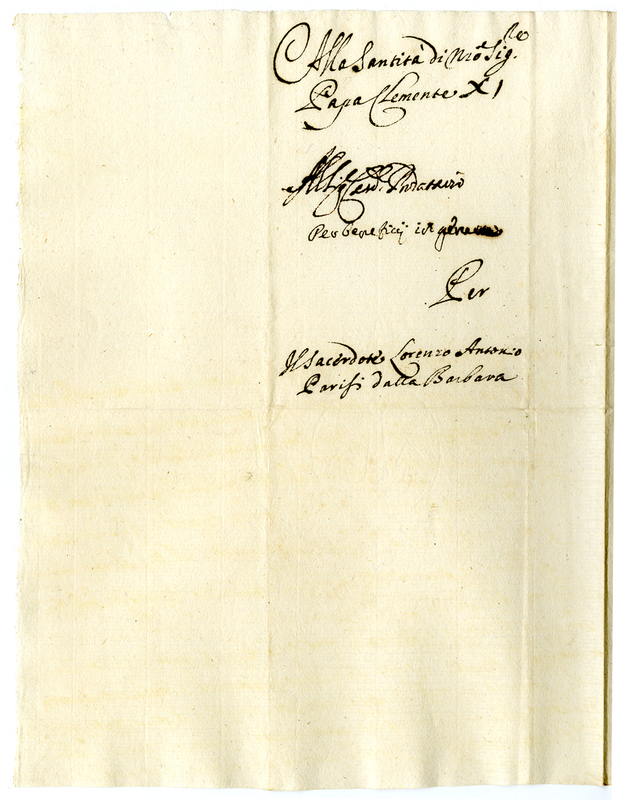 Alla Santità di Nrō Sig.re
Papa Clemente XI
All Sig Card. Prodatario
Per beneficij in genere
Per
Il Sacerdote Lorenzo Antonio
Parisi dalla Barbara